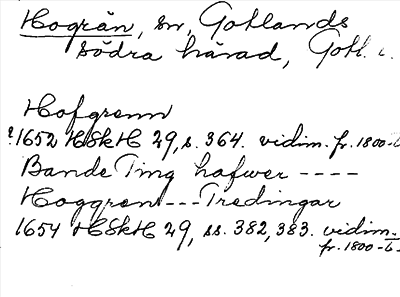 Hogrän, sn, Gotlands
södra härad, Gotl. l.
Hofgrenn
?1652 HSkH 29, s. 364. vidim. fr. 1800-t.
Bande Ting hafwer ----
Hoggren --- Tredingar
1654 HSkH 29, ss. 382, 383. vidim.
fr. 1800-t.